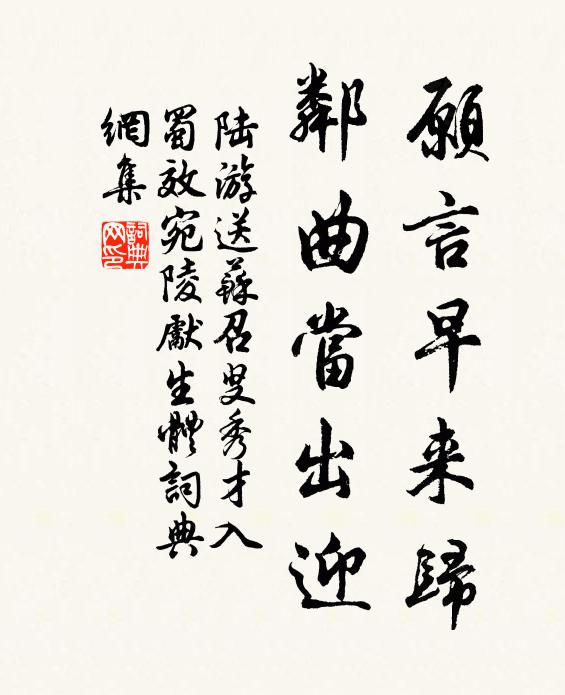 願言早来歸
鄰曲當出迎
陆游送蘇召叟秀才入
蜀效宛陵獻生體詞典
網集
詞典
网印